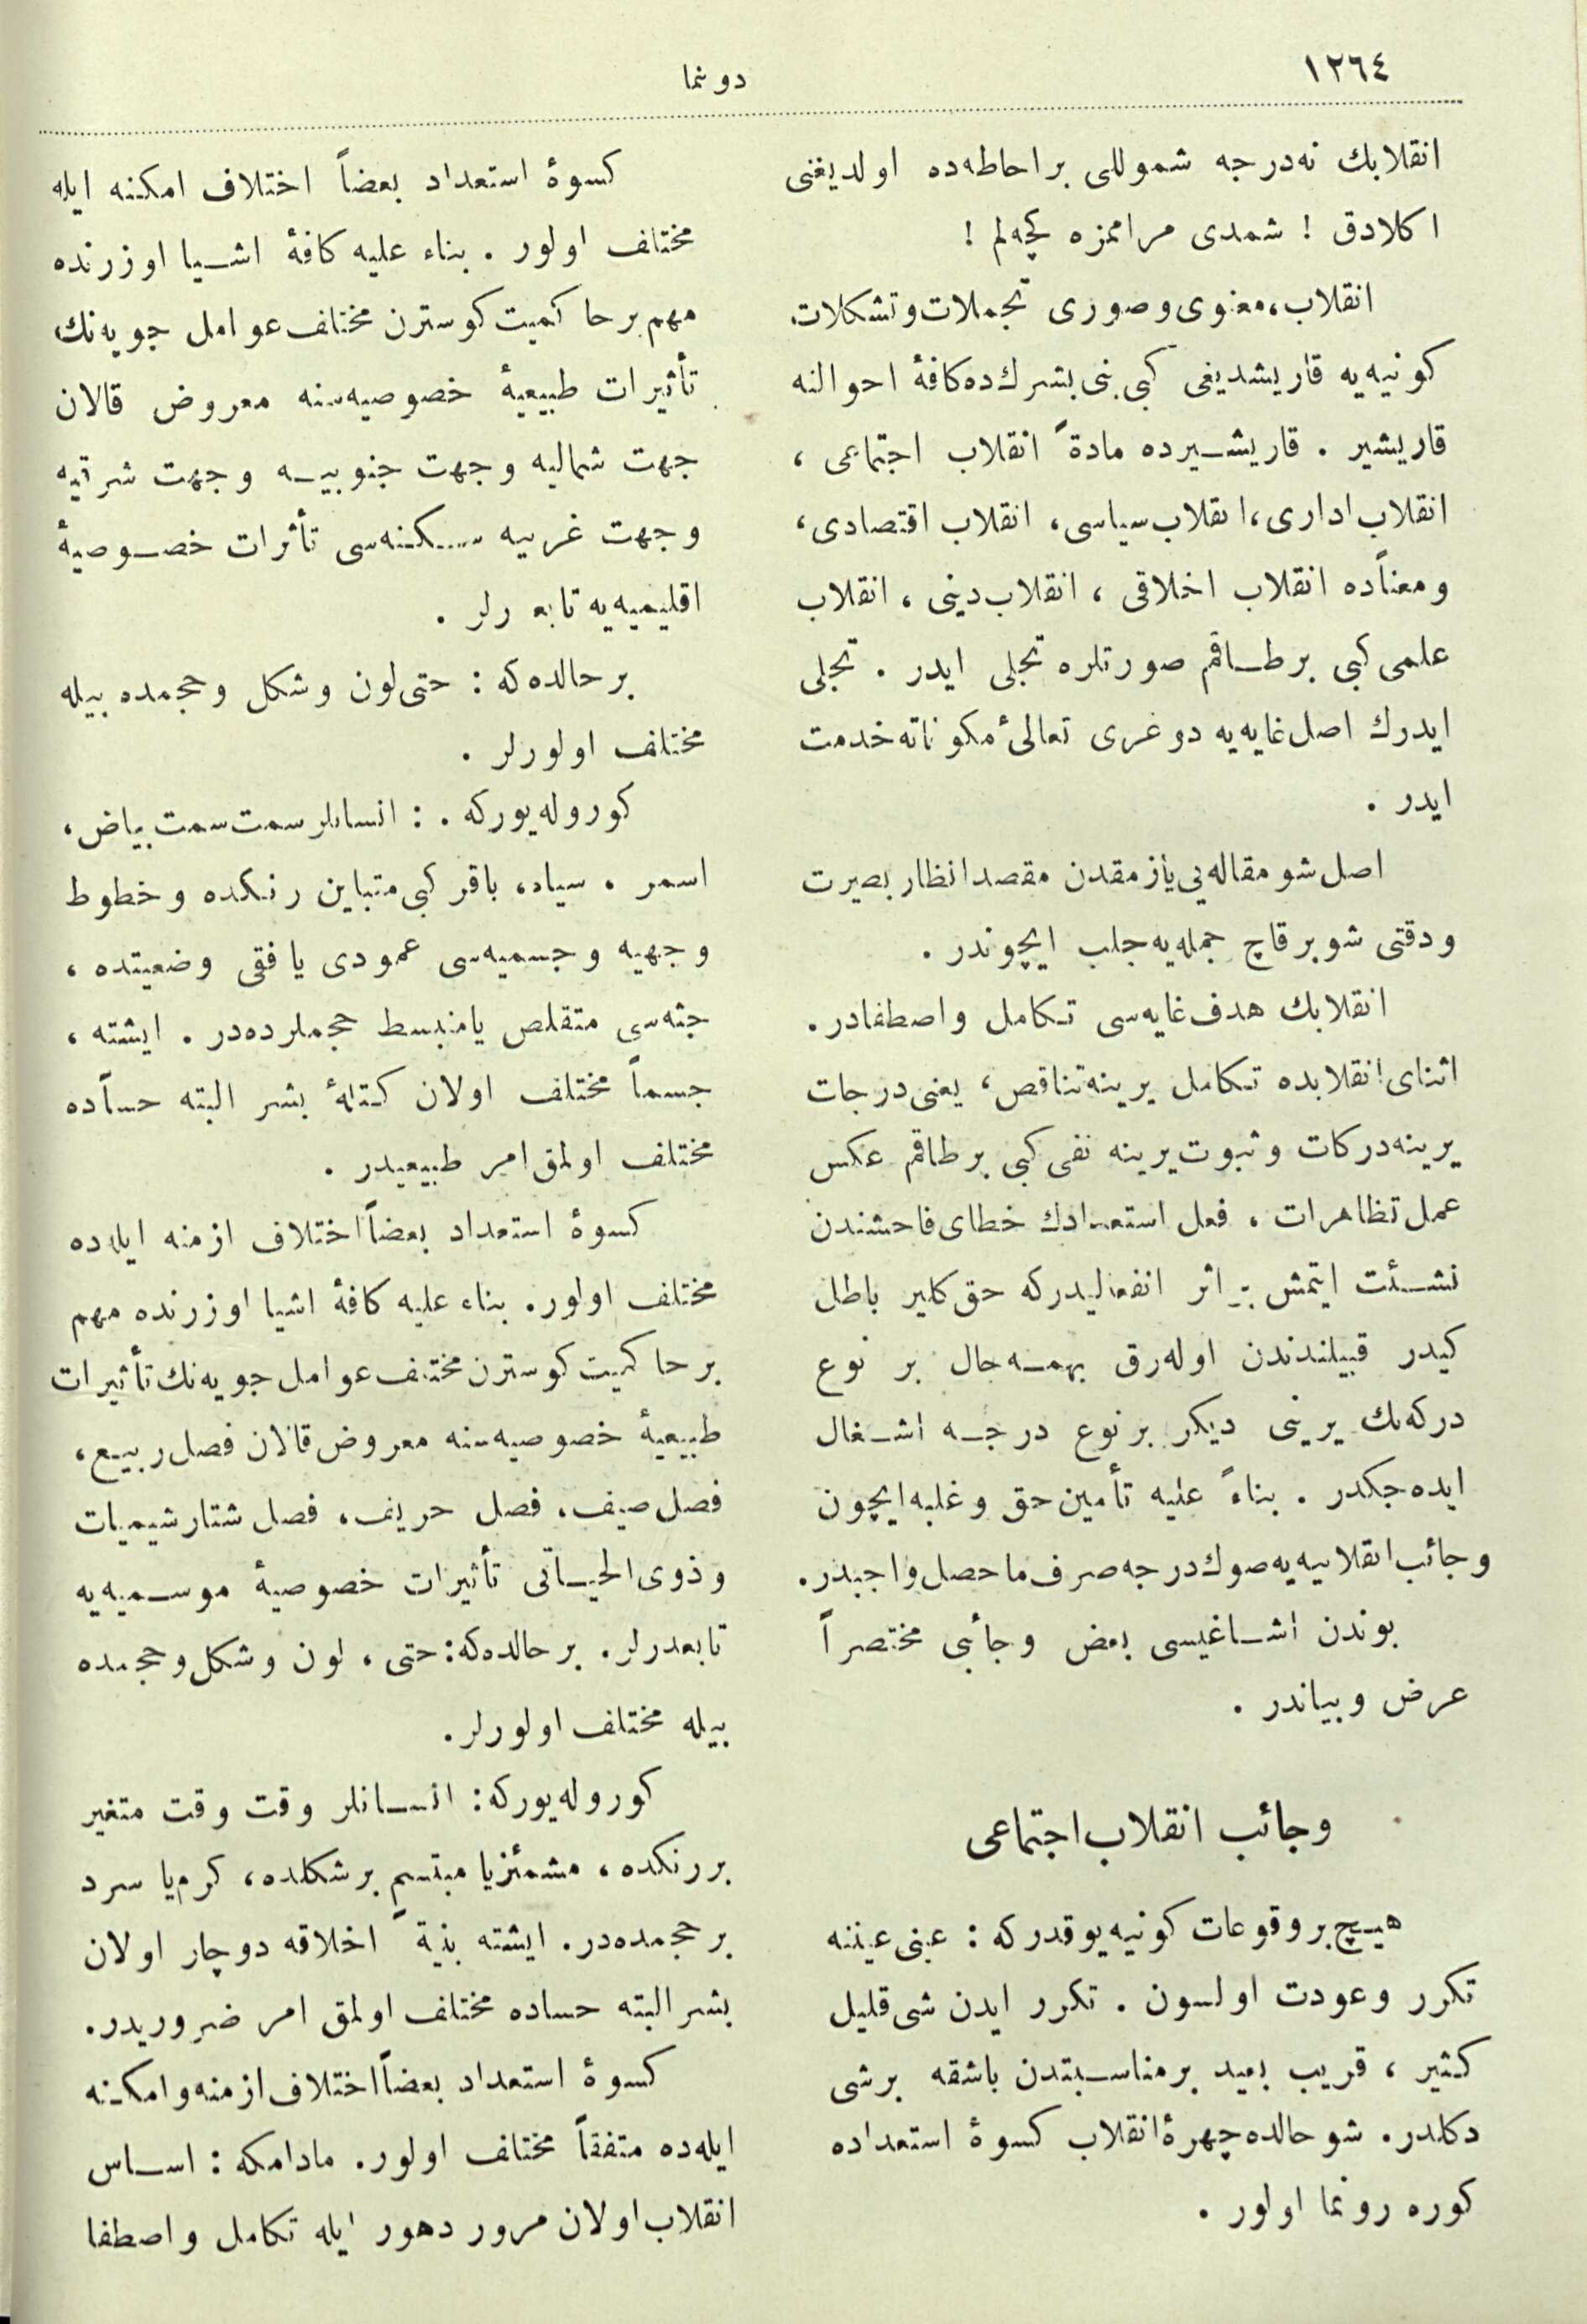 ١٢٦٤
دونما
انقلابك نه‌درجه شموللى براحاطه‌ده اولديغنى
اكلادق ! شمدى مراممزه كچه‌لم !
انقلاب، معنوى وصورى تجملات وتشكلات
كونيه‌يه قاريشديغى كبى بنى بشرك ده كافهٔ احوالنه
قاريشير . قاريشيرده مادةً انقلاب اجتماعى ،
انقلاب ادارى، انقلاب سياسى، انقلاب اقتصادى،
ومعناًده انقلاب اخلاقى ، انقلاب دينى ، انقلاب
علمى كبى برطاقم صورتلره تجلى ايدر . تجلى
ايدرك اصل غايه‌يه دوغرى تعالئ مكوناته خدمت
ايدر .
اصل شو مقاله‌يى يازمقدن مقصد انظار بصيرت
ودقتى شو برقاچ جمله‌يه جلب ايچوندر .
انقلابك هدف غايه‌سى تكامل واصطفادر .
اثناى انقلابده تكامل يرينه تناقص، يعنى درجات
يرينه دركات وثبوت يرينه نفى كبى برطاقم عكس
عمل تظاهرات ، فعل استعدادك خطاى فاحشندن
نشئت ايتمش بر اثر انفعاليدركه حق كلير باطل
كيدر قبيلندندن اوله‌رق بهمه‌حال بر نوع
دركه‌نك يرينى ديكر برنوع درجه اشغال
ايده‌جكدر . بناءً عليه تأمين حق وغلبه ايچون
وجائب انقلابيه‌يه صوك درجه صرف ماحصل واجبدر .
بوندن اشاغيسى بعض وجائبى مختصراً
عرض وبياندر .
وجائب انقلاب اجتماعى
هيچ بر وقوعات كونيه يوقدركه : عينى عيننه
تكرر وعودت اولسون . تكرر ايدن شى قليل
كثير ، قريب بعيد برمناسبتدن باشقه برشى
دكلدر. شو حالده چهرهٔ انقلاب كسوهٔ استعداده
كوره رونما اولور .
كسوهٔ استعداد بعضاً اختلاف امكنه ايله
مختلف اولور . بناء عليه كافهٔ اشيا اوزرنده
مهم برحاكميت كوسترن مختلف عوامل جويه‌نك
تأثيرات طبيعيهٔ خصوصيه‌سنه معروض قالان
جهت شماليه وجهت جنوبيه وجهت شرقيه
وجهت غربيه سكنه‌سى تأثرات خصوصيهٔ
اقليميه‌يه تابعدرلر .
برحالده‌كه : حتى لون وشكل وحجمده بيله
مختلف اولورلر .
كوروله‌يوركه . : انسانلر سمت سمت بياض،
اسمر . سياه، باقر كبى متباين رنكده وخطوط
وجهيه وجسميه‌سى عمودى يا فقى وضعيتده ،
جثه‌سى متقلص يا منبسط حجملرده‌در . ايشته ،
جسماً مختلف اولان كتلهٔ بشر البته حساًده
مختلف اولمق امر طبيعيدر .
كسوهٔ استعداد بعضاً اختلاف ازمنه ايله‌ده
مختلف اولور. بناء عليه كافهٔ اشيا اوزرنده مهم
برحاكميت كوسترن مختلف عوامل جويه‌نك تأثيرات
طبيعيهٔ خصوصيه‌سنه معروض قالان فصل ربيع،
فصل صيف، فصل خريف، فصل شتار شيميات
وذوى الحياتى تأثيرات خصوصيهٔ موسميه‌يه
تابعدرلر. برحالده‌كه: حتى ، لون وشكل وحجمده
بيله مختلف اولورلر.
كوروله‌يوركه: انسانلر وقت وقت متغير
بررنكده، مشمئز يا مبتسم برشكلده، كرم يا سرد
برحجمده‌در. ايشته بنيةً اخلاقه دوچار اولان
بشر البته حساده مختلف اولمق امر ضروريدر.
كسوهٔ استعداد بعضاً اختلاف ازمنه وامكنه
ايله‌ده متفقاً مختلف اولور. مادامكه : اساس
انقلاب اولان مرور دهور ايله تكامل واصطفا